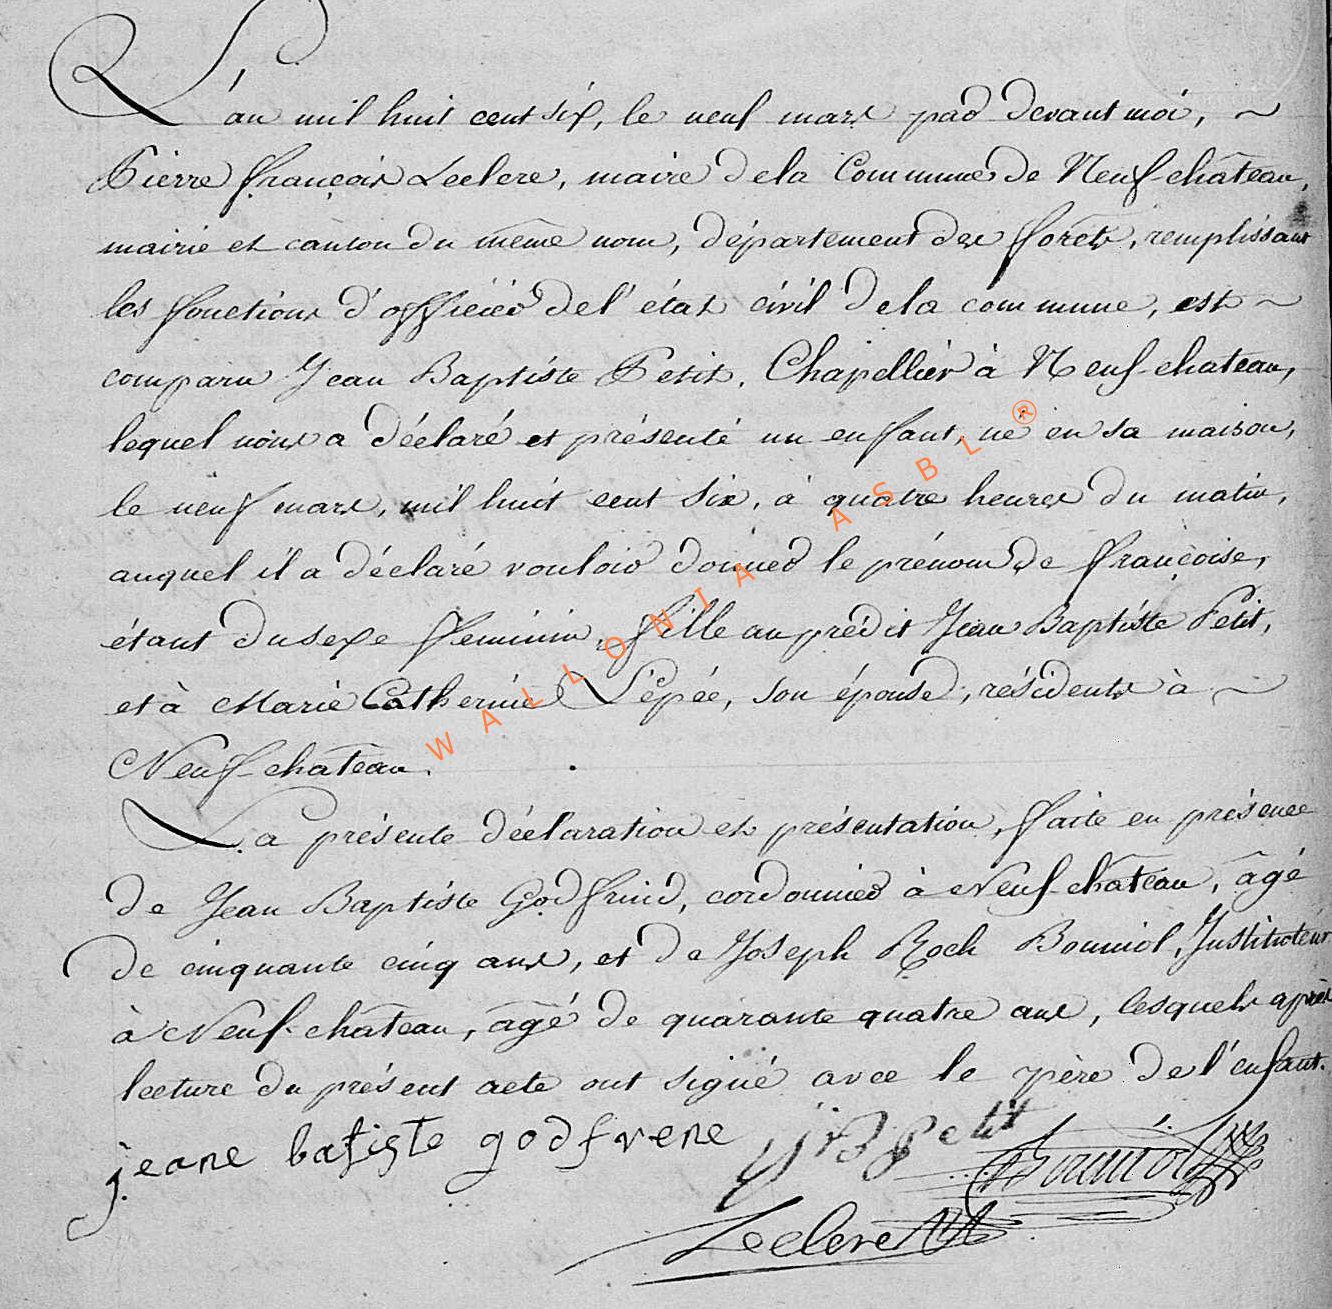 L'an mil huit cent six, le neuf mars par devant moi, ~
Pierre françois Leclere, maire de la Commune de Neuf-château,
mairie et canton du même nom, département des forêts, remplissant
les fonctions d'officier de l'état civil de la commune, est ~
comparu Jean Baptiste Petit, Chapellier à Neuf-chateau,
lequel nous a déclaré et présenté un enfant, né en sa maison,
le neuf mars, mil huit cent six, à quatre heures du matin,
auquel il a déclaré vouloir donner le prénom de françoise,
étant du sexe feminin, fille au prédit Jean Baptiste Petit,
et à Marie Catherine L'épée, son épouse, résidents à ~
Neuf-château.
La présente déclaration et présentation, faite en présence
de Jean Baptiste Godfrind, cordonnier à Neuf-château, âgé
de cinquante cinq ans, et de Joseph Roch Bouniol, Instituteur
à Neuf-château, âgé de quarante quatre ans, lesquels après
lecture du présent acte ont signé avec le père de l'enfant.
jeane batiste godfrene
J B petit
Bouniol
Leclere
WALLONIA ASBL ®